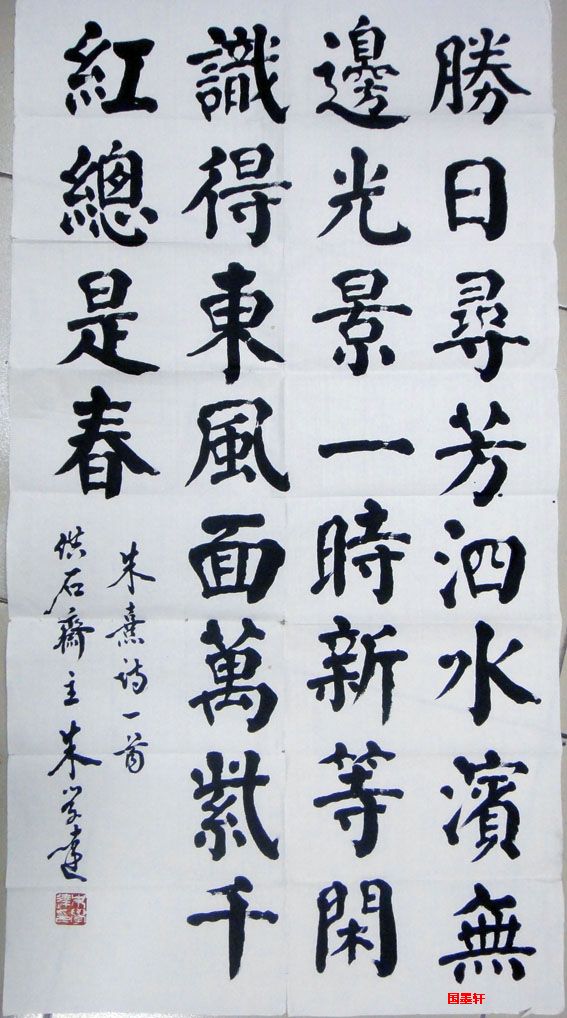 勝日尋芳泗水濱無
邊光景一時新等閑
識得東風面萬紫千
紅總是春
朱熹诗一首
供石齋主朱学達
国墨轩